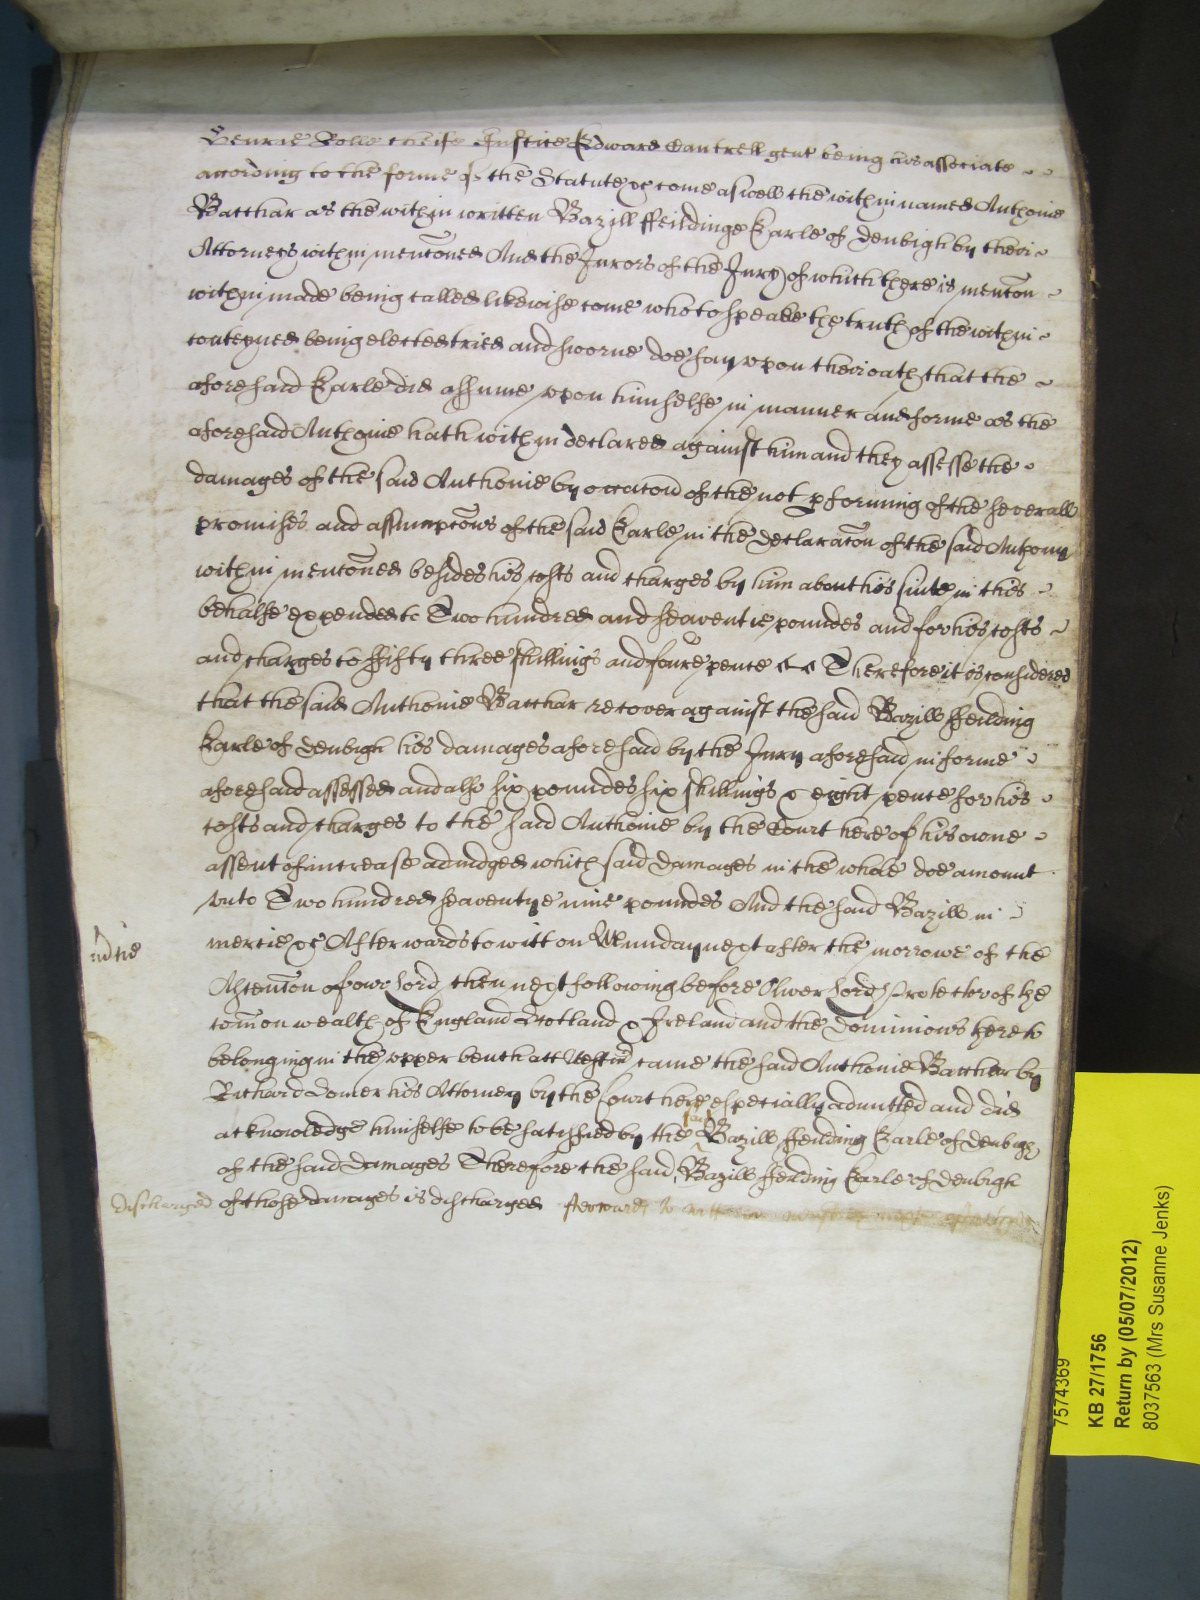 Henrie Rolle cheife Justice Edward Cantrell gent being his associate
according to the forme of the Statute &c come aswell the within named Anthonie
Batchar as the within written Bazill ffeildinge Earle of Denbigh by their
Attorneys within menc̄oned And the Jurors of the Jury of which there is menc̄on
within made being called likewise come who to speake the truth of the within
conteyned being elected tried and sworne doe say vpon their oath that the
aforesaid Earle did assume vpon himselfe in manner and forme as the
aforesaid Anthonie hath within declared against him and they assesse the
damages of the said Anthonie by occac̄on of the not pforming of the severall
promises and assumpc̄ons of the said Earle in the declarac̄on of the said Anthony
within menc̄oned besides his costs and charges by him about his suite in this
behalfe expended to Two hundred and seaventie poundes and for his costs
and charges to ffifty three shillings and foure pence Therefore it is considered
that the said Anthonie Batchar recover against the said Bazill ffeilding
Earle of Denbigh his damages aforesaid by the Jury aforesaid in forme
aforesaid assessed and also six poundes six shillings & eight pence for his
costs and charges to the said Anthonie by the Court here of his owne
assent of increase adiudged which said damages in the whole doe amount
vnto Two hundred seaventye nine poundes And the said Bazill in
mercie &c Afterwards to witt on Munday next after the morrowe of the
Ascenc̄on of our Lord then next following before Oliver Lord Protector of the
Com̄onwealth of England Scotland & Ireland and the Dominions hereto
belonging in the vpper bench att Westm̄ came the said Anthonie Batchar by
Richard Lomer his Attorney by the Court here especially admitted and did
acknowledge himselfe to be satisfied by the said Bazill ffeilding Earle of Denbigh
of the said damages Therefore the said Bazill ffeilding Earle of Denbigh
discharged of those damages is discharged
7574369
KB 27/1756
Return by (05/07/2012)
8037563 (Mrs Susanne Jenks)